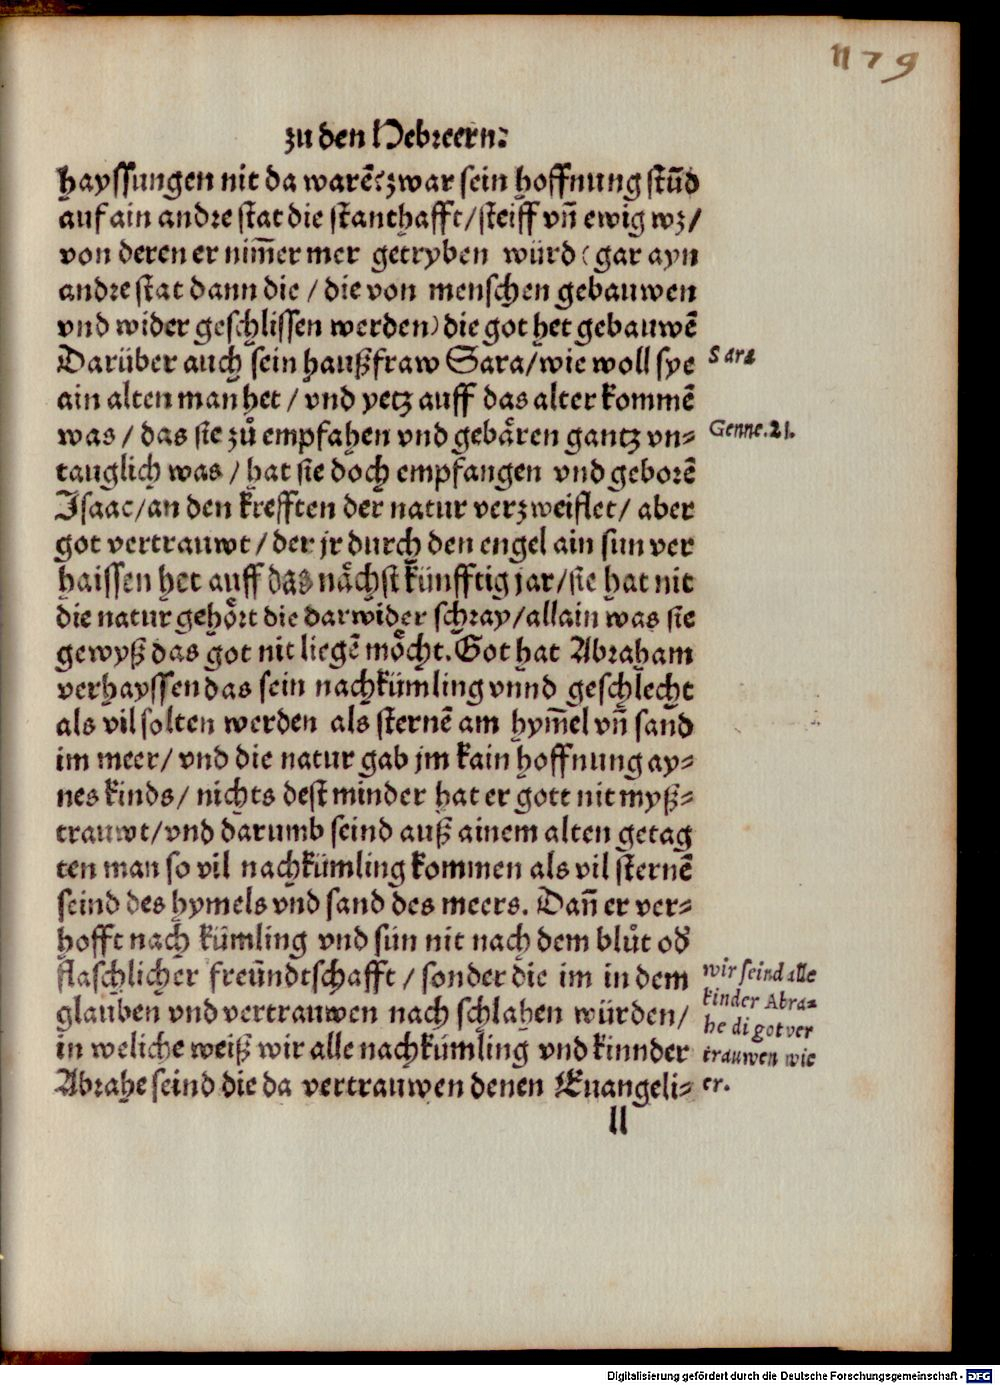 1179
zu den Hebreern.
hayssungen nit da warē? zwar sein hoffnung stūd
auf ain andre stat die stanthafft / steiff vñ ewig wz /
von deren er nim̄er mer getryben würd (gar ayn
andre stat dann die / die von menschen gebauwen
vnd wider geschlissen werden) die got het gebauwē
Darüber auch sein haußfraw Sara / wie woll sye
Sara
ain alten man het / vnd yetz auff das alter kommē
was / das sie zů empfahen vnd gebåren gantz vn⸗
Genne. 21.
tauglich was / hat sie doch empfangen vnd geborē
Isaac / an den krefften der natur verzweiflet / aber
got vertrauwt / der jr durch den engel ain sun ver
haissen het auff das nåchst künfftig jar / sie hat nit
die natur gehört die darwider schray / allain was sie
gewyß das got nit liegē möcht. Got hat Abraham
verhayssen das sein nachkümling vnnd geschlecht
als vil solten werden als sternē am hym̄el vñ sand
im meer / vnd die natur gab jm kain hoffnung ay⸗
nes kinds / nichts dest minder hat er gott nit myß⸗
trauwt / vnd darumb seind auß ainem alten getag
ten man so vil nachkümling kommen als vil sternē
seind des hymels vnd sand des meers. Dañ er ver⸗
hofft nach kümling vnd sün nit nach dem blůt od̄
flaschlicher freündtschafft / sonder die im in dem
glauben vnd vertrauwen nach schlahen würden /
in weliche weiß wir alle nachkümling vnd kinnder
Abrahe seind die da vertrauwen denen Euangeli⸗
wir seind alle
kinder Abra⸗
he di got ver
trauwen wie
er.
ll
Digitalisierung gefördert durch die Deutsche Forschungsgemeinschaft - DFG